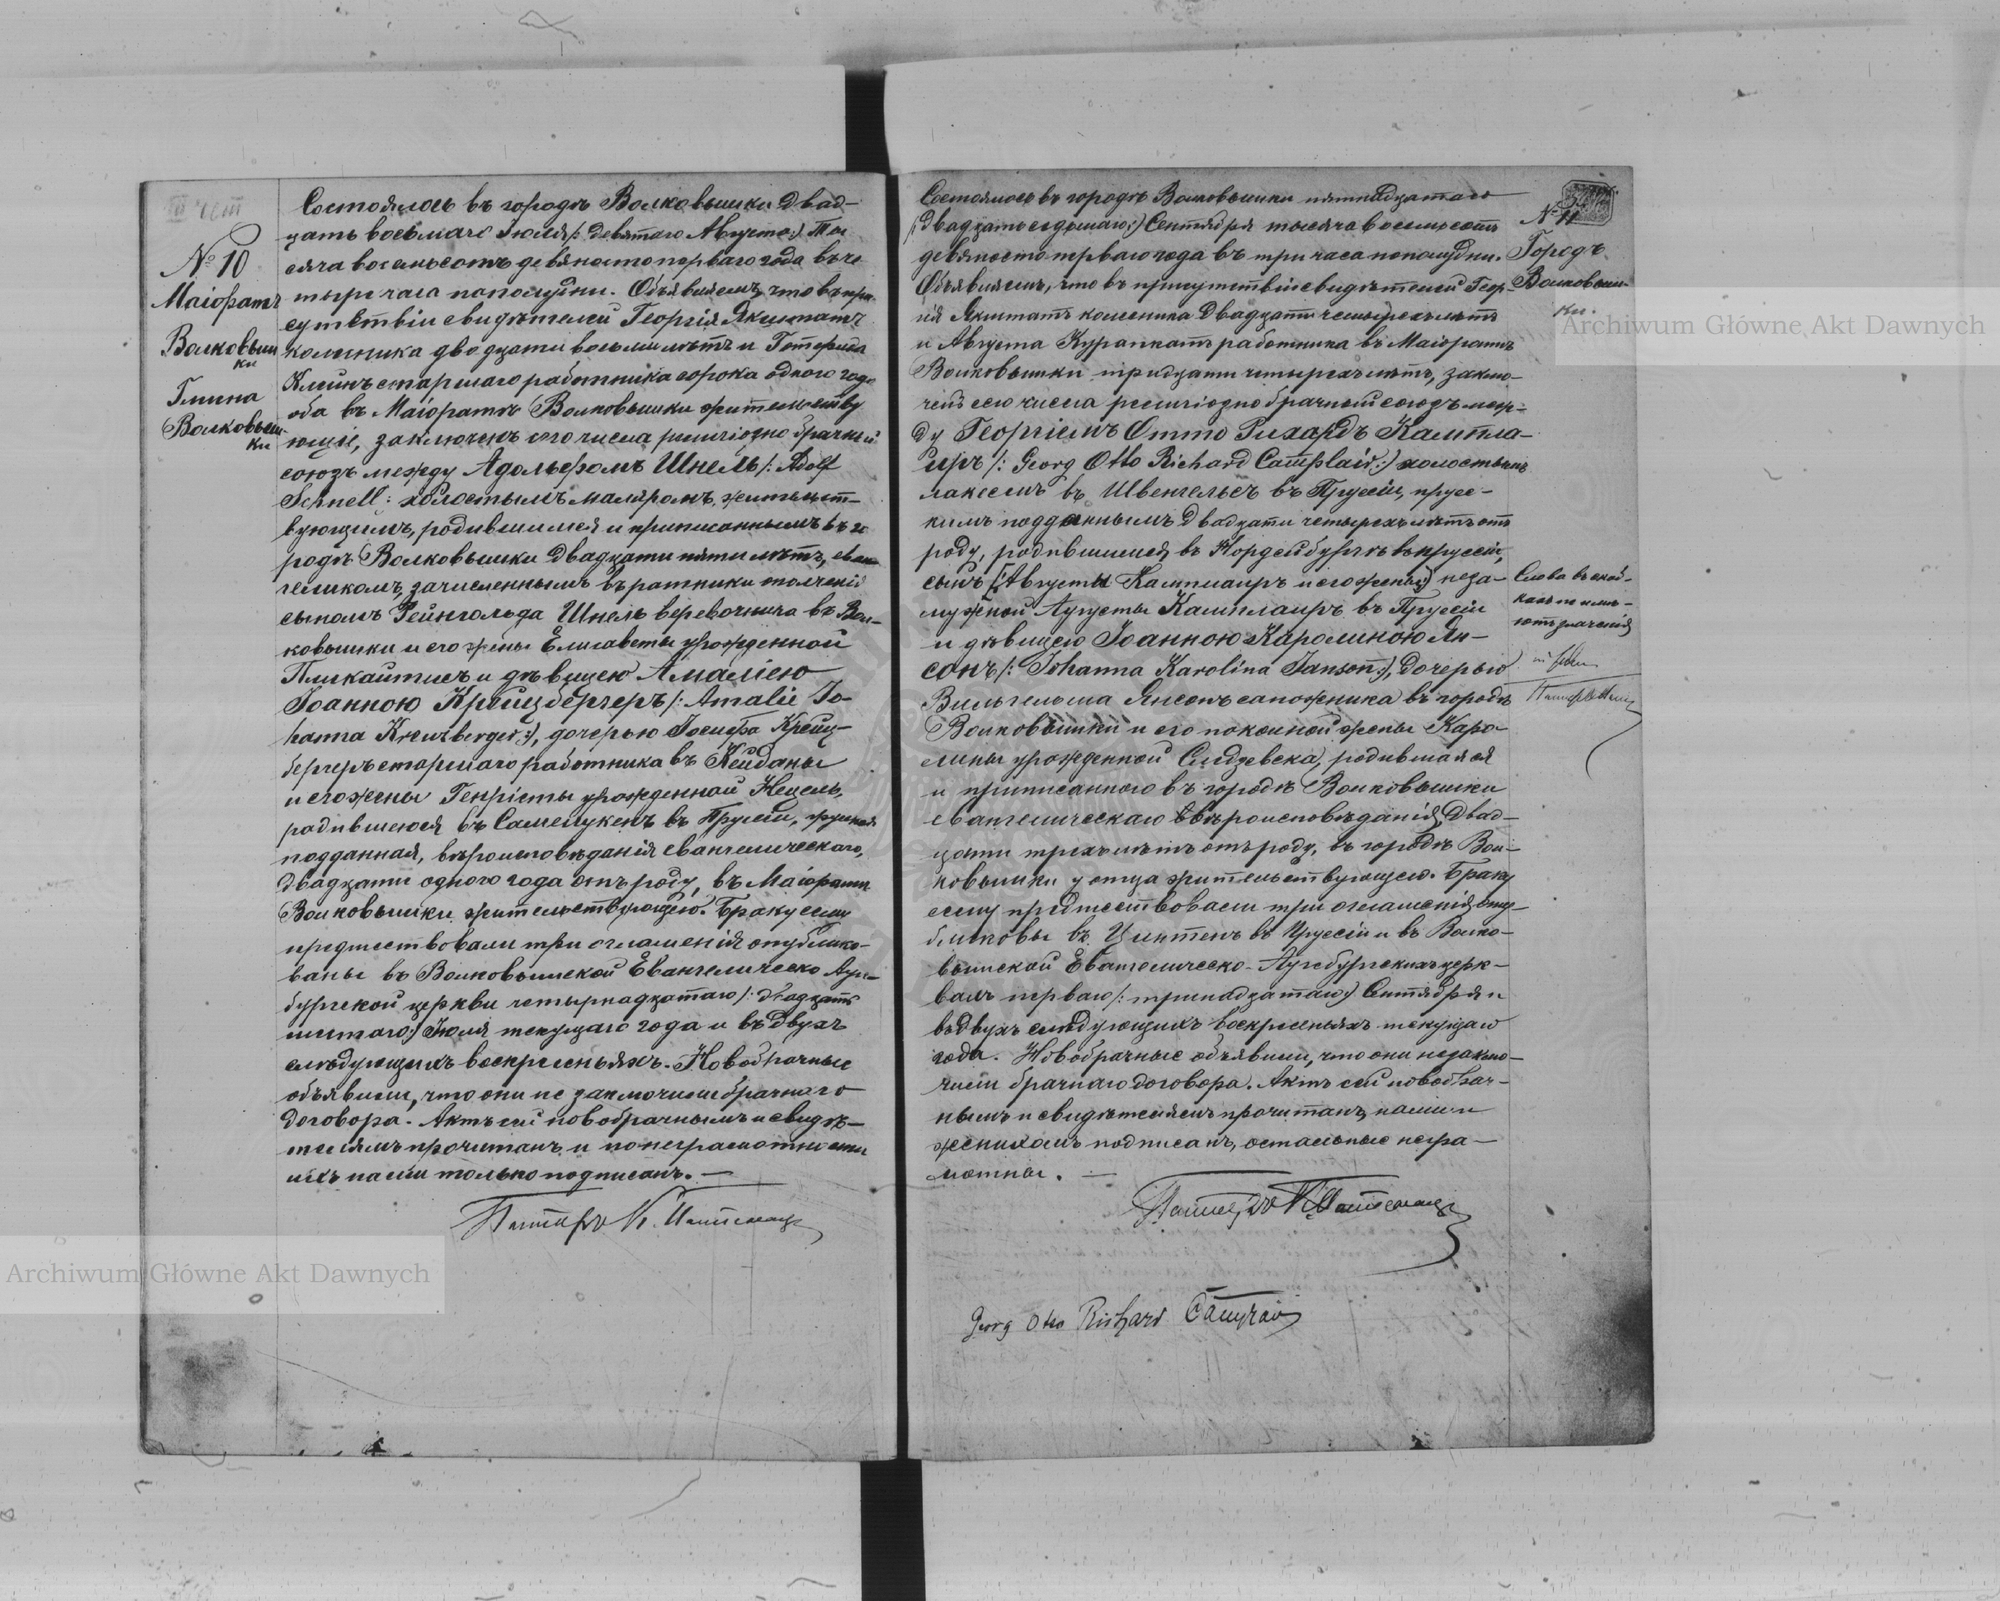 № 10
Маіоратъ
Волковыш
ки
Гмина
Волковыш-
ки
Состоялось въ городѣ Волковышки два-
дцать восьмаго Іюля /: девятаго Августа :/ Ты-
сяча восемьсотъ девяносто перваго года въ че-
тыре часа пополудни. Объявляемъ, что въ при-
сутствіи свидѣтелей Георгія Якштатъ
колесника двадцати восьми лѣтъ и Готфрида
Клейнъ старшаго работника сорока одного года
оба въ Маіоратѣ Волковышки жительству
ющіе, заключенъ сего числа религіозно брачный
союзъ между Адольфомъ Шнель /: Adolf
Schnell : холостымъ маляромъ, жительст-
вующимъ, родившимся и приписаннымъ въ го
родѣ Волковышки двадцати пяти лѣтъ, еван
геликомъ, зачисленнымъ въ ратники ополченія
сыномъ Рейнгольда Шнель веревочника въ Вол-
ковышки и его жены Елисаветы урожденной
и дѣвицею Амаліею
Іоанною Крейцбергеръ /: Amalie Jo-
hanna Kreutzberger :/, дочерью Іосифа Крейц-
бергеръ старшаго работника въ Кейданы
и его жены Генріеты урожденной Нецель,
родившеюся въ въ Пруссіи, прусская
подданная, вѣроисповѣданія евангелическаго,
двадцати одного года отъ роду, въ Маіоратѣ
Волковышки жительствующею. Браку сему
предшествовали три оглашенія опублико-
ваны въ Волковышской Евангелическо Аугс-
бургской церкви четырнадцатаго /: двадцать
шестаго :/ Іюля текущаго года и въ двухъ
слѣдующихъ воскресеньяхъ. Новобрачные
объявили, что они не заключили брачнаго
договора. Актъ сей новобрачнымъ и свидѣ-
телямъ прочитанъ и по неграмотности
ихъ нами только подписанъ. —
Пасторъ К.
№ 11
Городъ
Волковыш-
ки.
Состоялось въ городѣ Волковышки пятнадцатаго
/: двадцать седьмаго :/ Сентября тысяча восемьсотъ
девяносто перваго года въ три часа пополудни.
Объявляемъ, что въ присутствіи свидѣтелей Геор-
гія Якштатъ колесника двадцати четырехъ лѣтъ
и Августа Курапкатъ работника въ Маіоратѣ
Волковышки тридцати четырехъ лѣтъ, заклю-
ченъ сего числа религіозно брачный союзъ меж-
ду Георгіемъ Отто Рихардъ Кампла-
иръ /: Georg Otto Richard Camplair :/ холостымъ
лакеемъ въ въ Пруссіи, прусс-
кимъ подданнымъ двадцати четырехъ лѣтъ отъ
роду, родившимся въ Норденбургѣ въ Пруссіи,
сынъ /: Августы Камплаиръ и его жены :/ неза-
мужной Аугусты Камплаиръ въ Пруссіи
и дѣвицею Іоанною Каролиною Ян-
сонъ /: Johanna Karolina Janson :/, дочерью
Вильгельма Янсонъ сапожника въ городѣ
Волковышки и его покойной жены Каро-
лины урожденной родившаяся
и приписанного въ городѣ Волковышки
евангелическаго вѣроисповѣданія, двад-
цати трехъ лѣтъ отъ роду, въ городѣ Вол-
ковышки у отца жительствующею. Браку
сему предшествовали три оглашенія опу-
бликовы въ Цинтенъ въ Пруссіи и въ Волко-
вышской Евангелическо-Аугсбургскихъ церк-
вахъ перваго /: тринадцатаго :/ Сентября и
въ двухъ слѣдующихъ воскресеньяхъ текущаго
года. Новобрачные объявили, что они незаклю-
чили брачнаго договора. Актъ сей новобрач-
нымъ и свидѣтелямъ прочитанъ, нами и
женихомъ подписанъ, остальные негра-
мотны. —
Слова въ скоб-
кахъ не имѣ-
ютъ значенія
Пасторъ
Пасторъ К.
Georg Otto Richard Camplair
Archiwum Główne Akt Dawnych
Archiwum Główne Akt Dawnych